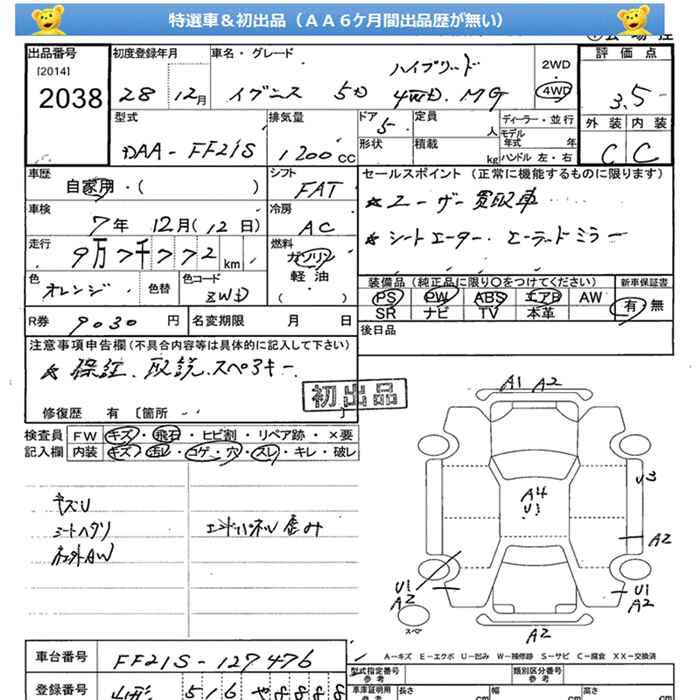 特選車＆初出品（ＡＡ６ケ月間出品歴が無い）
出品番号
[2014]
2038
初度登録年月
28 12月
車名・グレード
ハイブリード
イグニス 5D 4WD. MG
2WD
4WD
評価点
3.5
外装 内装
C C
型式
DAA-FF21S
排気量
1200cc
ドア
5
形状
定員
人
積載
kg
ディーラー・並行
モデル
年式 年
ハンドル 左・右
車歴
自家用・( )
シフト
FAT
セールスポイント（正常に機能するものに限ります）
★ユーザー買取車
★シートヒーター.ヒーテッドミラー
車検
7年 12月(12日)
冷房
AC
走行
km
燃料
ガソリン
軽油
( )
色
オレンジ
色替
色コード
ZWD
装備品（純正品に限り〇をつけてください）
PS PW ABS エアB AW
SR ナビ TV 本革
新車保証書
有 無
R券 9030 円
名変期限 月 日
後日品
注意事項申告欄（不具合内容等は具体的に記入して下さい）
★ 保証.取説.スペアキー
初出品
修復歴 有 〔箇所 〕
検査員
記入欄
FW キズ・飛石・ヒビ割・リペア跡・×要
内装 キズ・汚レ・コゲ・穴・スレ・キレ・破レ
キズU
シートヘタリ
社外AW
エンドパネル歪み
A1 A2
A4
U1
U3
A2
U1
A2
U1
A2
スペア
A2
A－キズ E－エクボ U－凹み W－補修跡 S－サビ C－腐食 XX－交換済
車台番号 FF21S-127476
型式指定番号
参考
類別区分番号
参考
登録番号
車庫証明用
参考
長さ cm
幅 cm
高さ cm